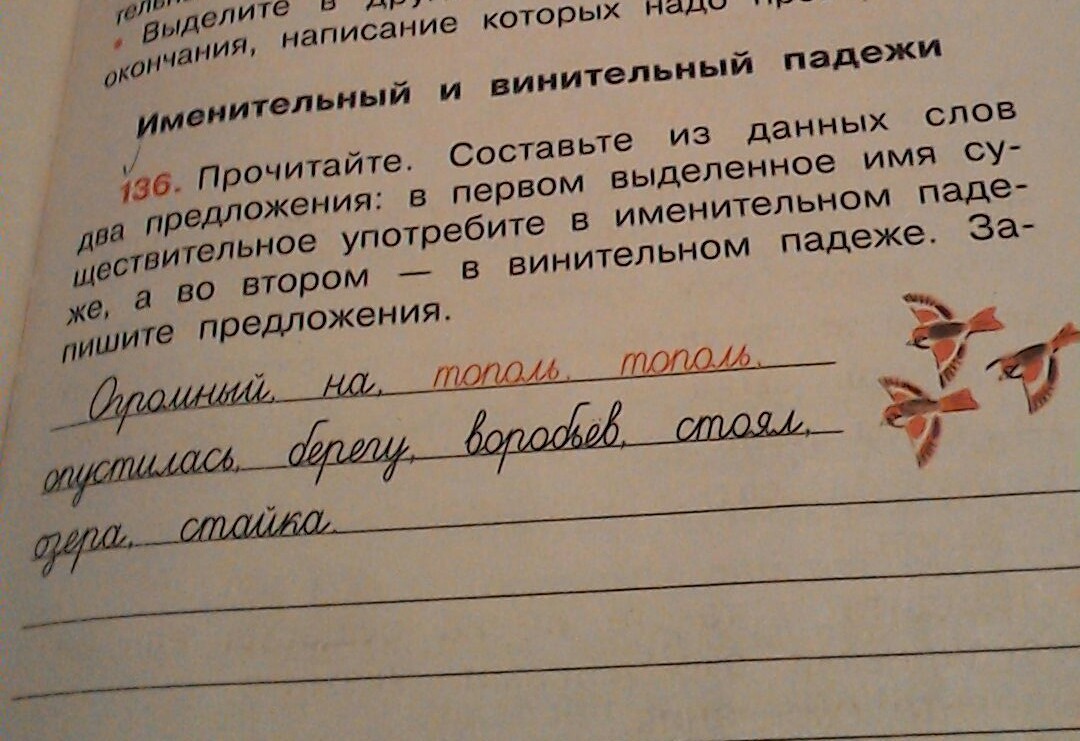 • Выделите в
окончания, написание которых надо
Именительный и винительный падежи
136. Прочитайте. Составьте из данных слов
два предложения: в первом выделенное имя су-
ществительное употребите в именительном паде-
же, а во втором — в винительном падеже. За-
пишите предложения.
Огромный, на, тополь, тополь,
опустилась, берегу, воробьёв, стоял,
озера, стайка.